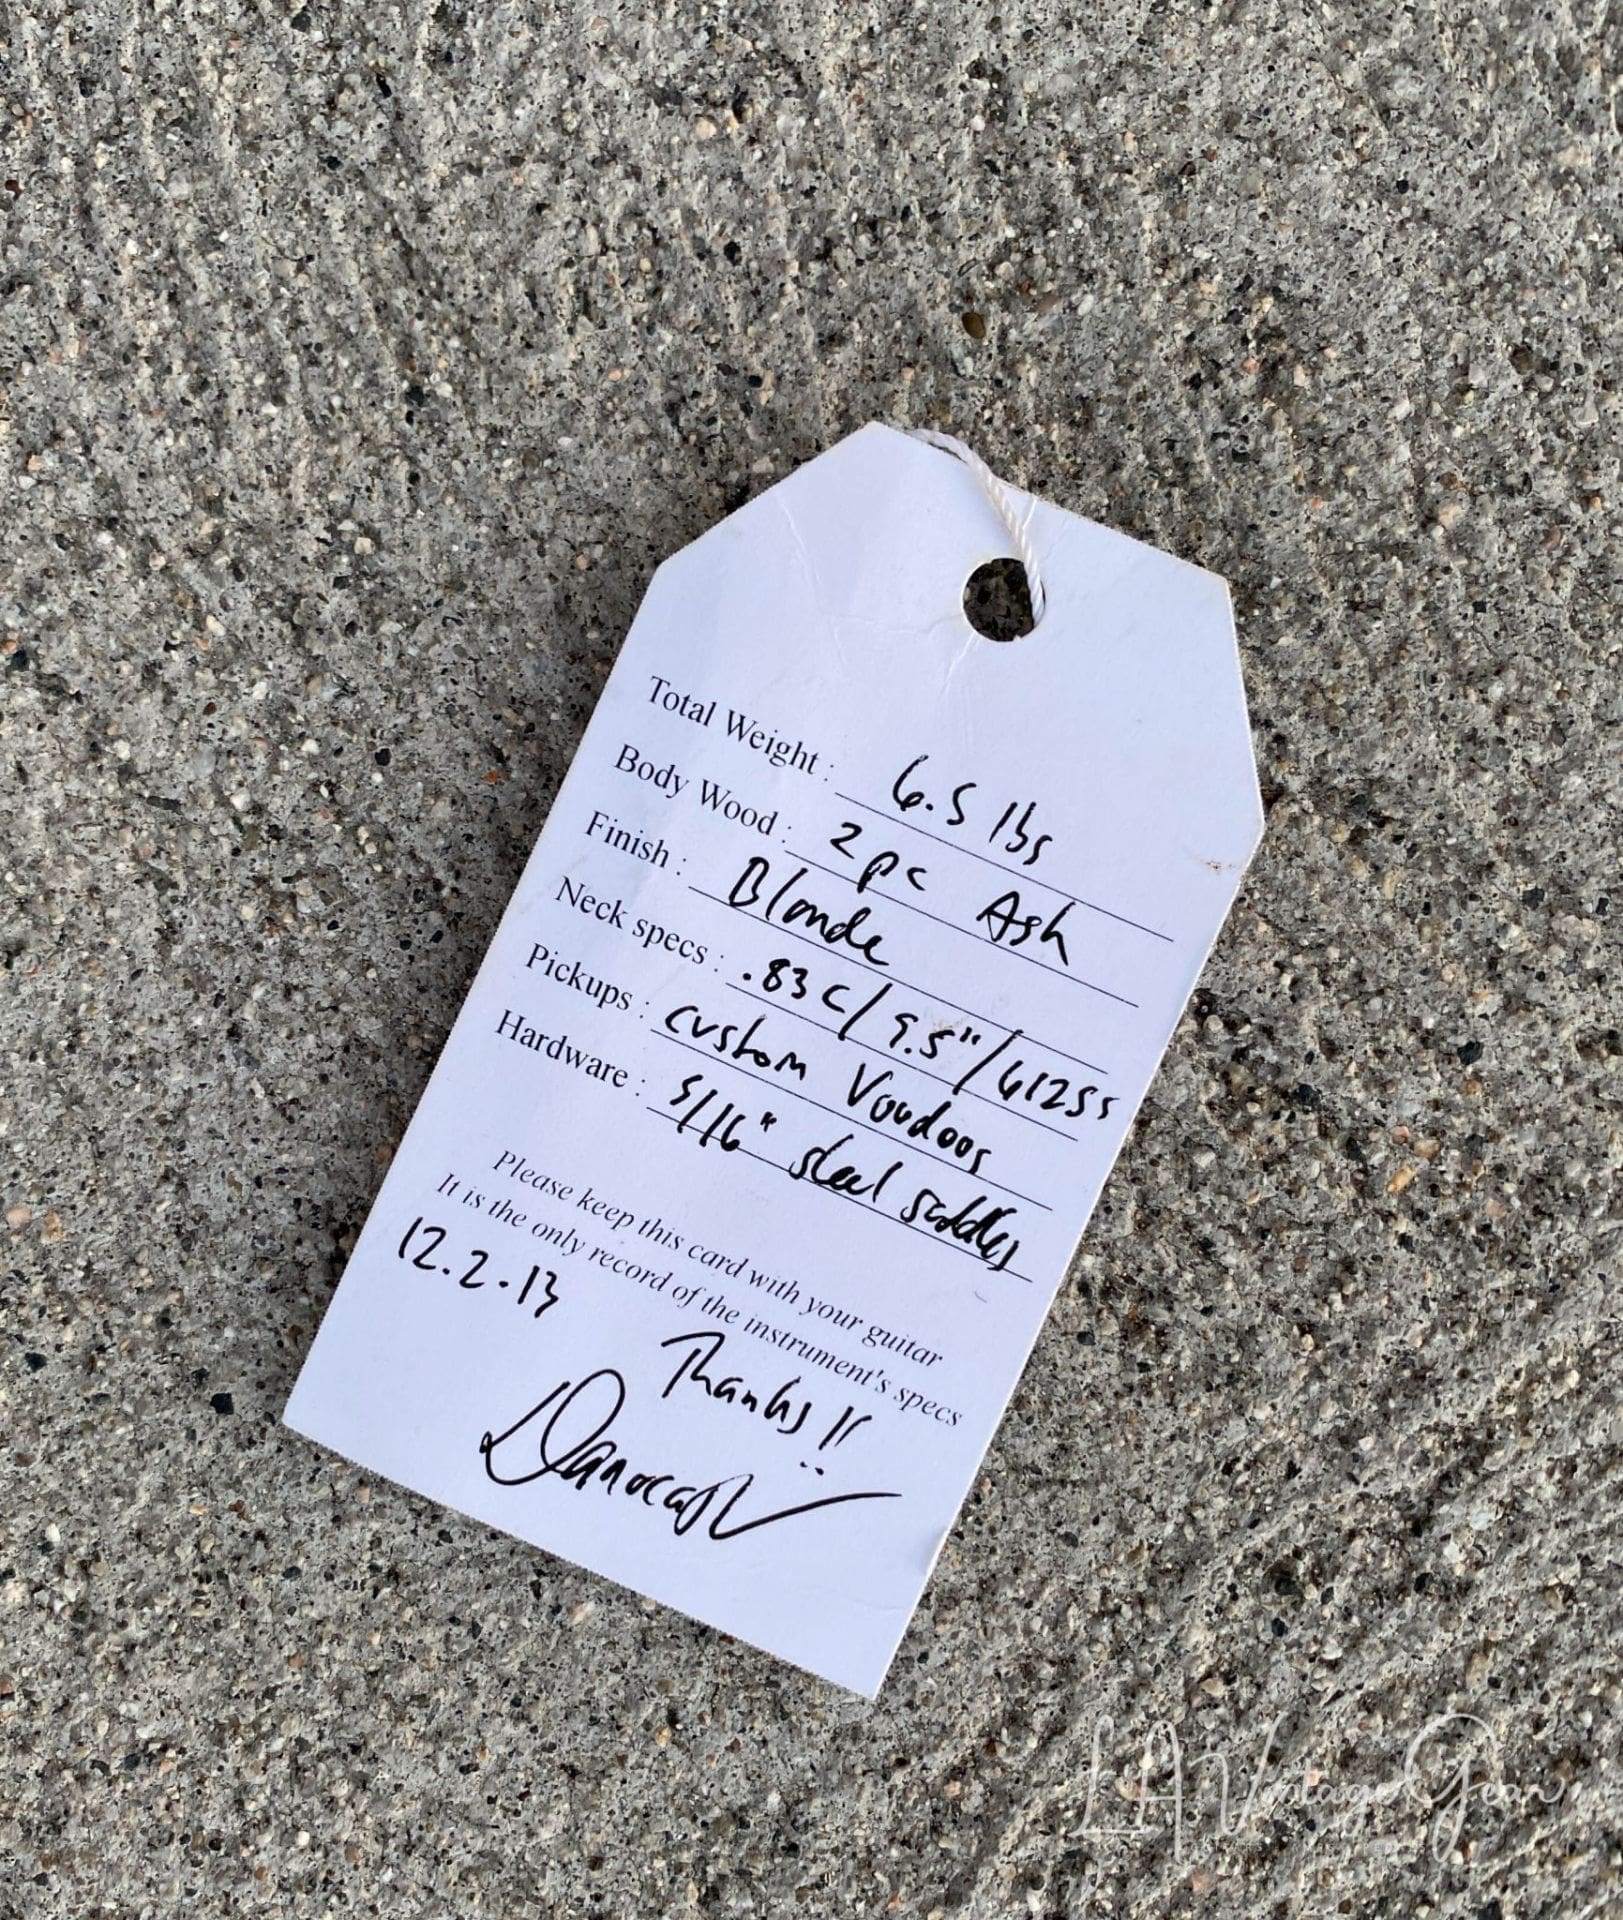 Total Weight : 6.5 lbs
Body Wood : 2 pc Ash
Finish : Blonde
Neck specs : .83 C / 9.5" / 6125s
Pickups : Custom Voodoos
Hardware : 5/16" steel saddles
Please keep this card with your guitar
It is the only record of the instrument's specs
12.2.13
Thanks!!
Danocaster
LA Vintage Gear